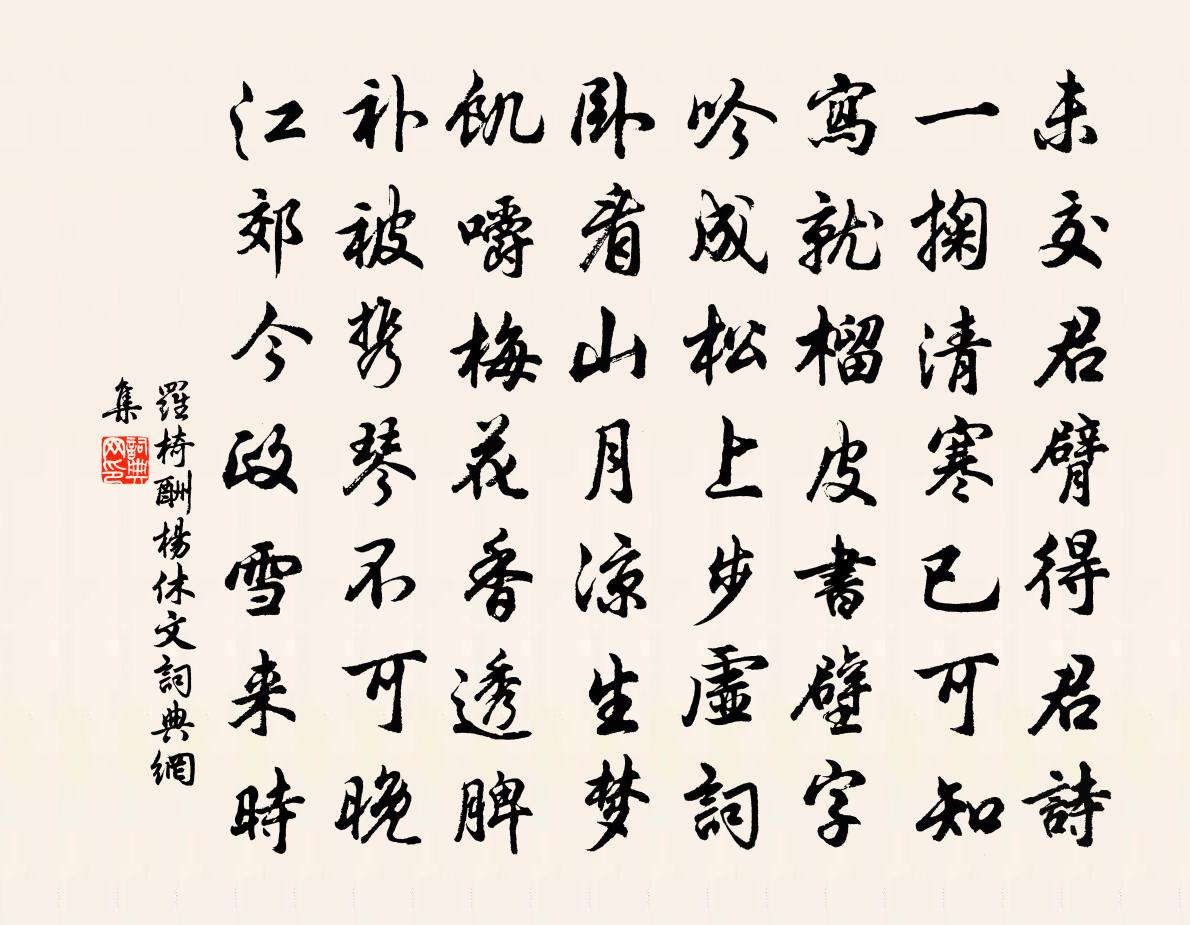 未交君臂得君詩
一掬清寒已可知
寫就榴皮書壁字
吟成松上步虛詞
卧看山月凉生梦
飢嚼梅花香透脾
补被携琴不可晚
江郊今政雪来時
羅椅酬楊休文詞典網
集
詞典
网印